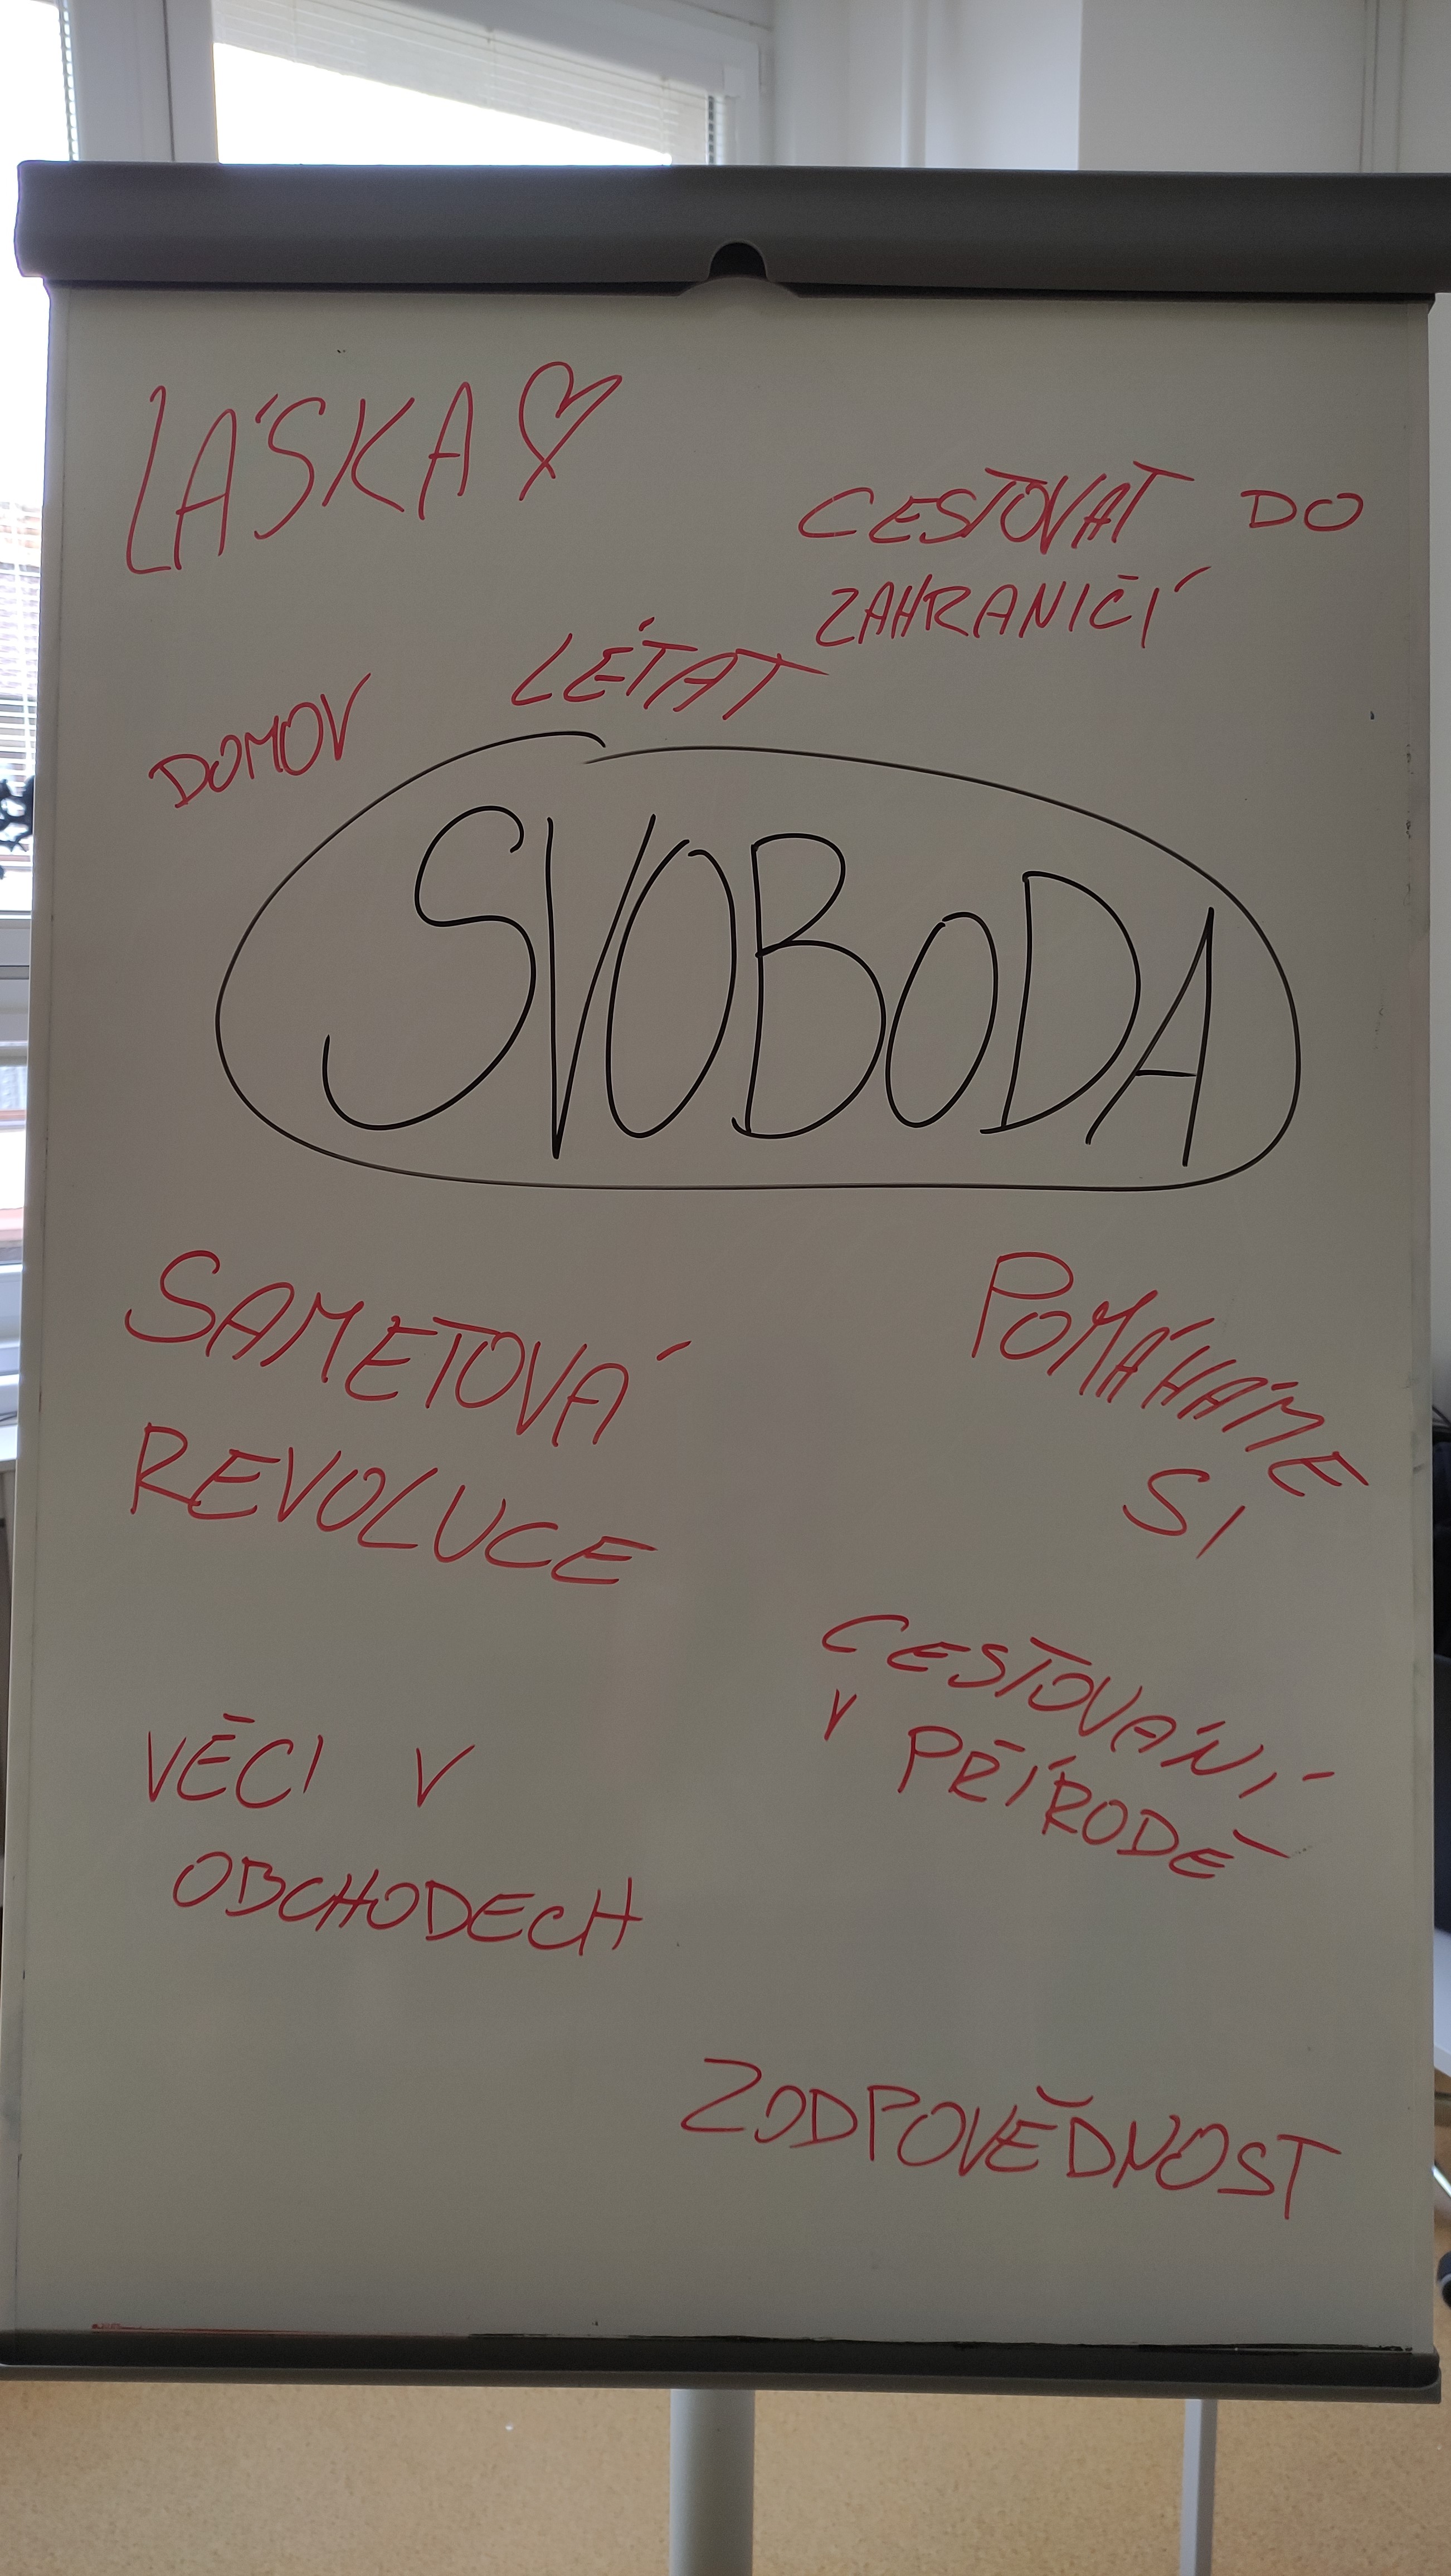 LÁSKA
CESTOVAT DO
ZAHRANIČÍ
LÉTAT
DOMOV
SVOBODA
SAMETOVÁ
REVOLUCE
POMÁHÁME
SI
CESTOVÁNÍ
V PŘÍRODĚ
VĚCI V
OBCHODECH
ZODPOVĚDNOST